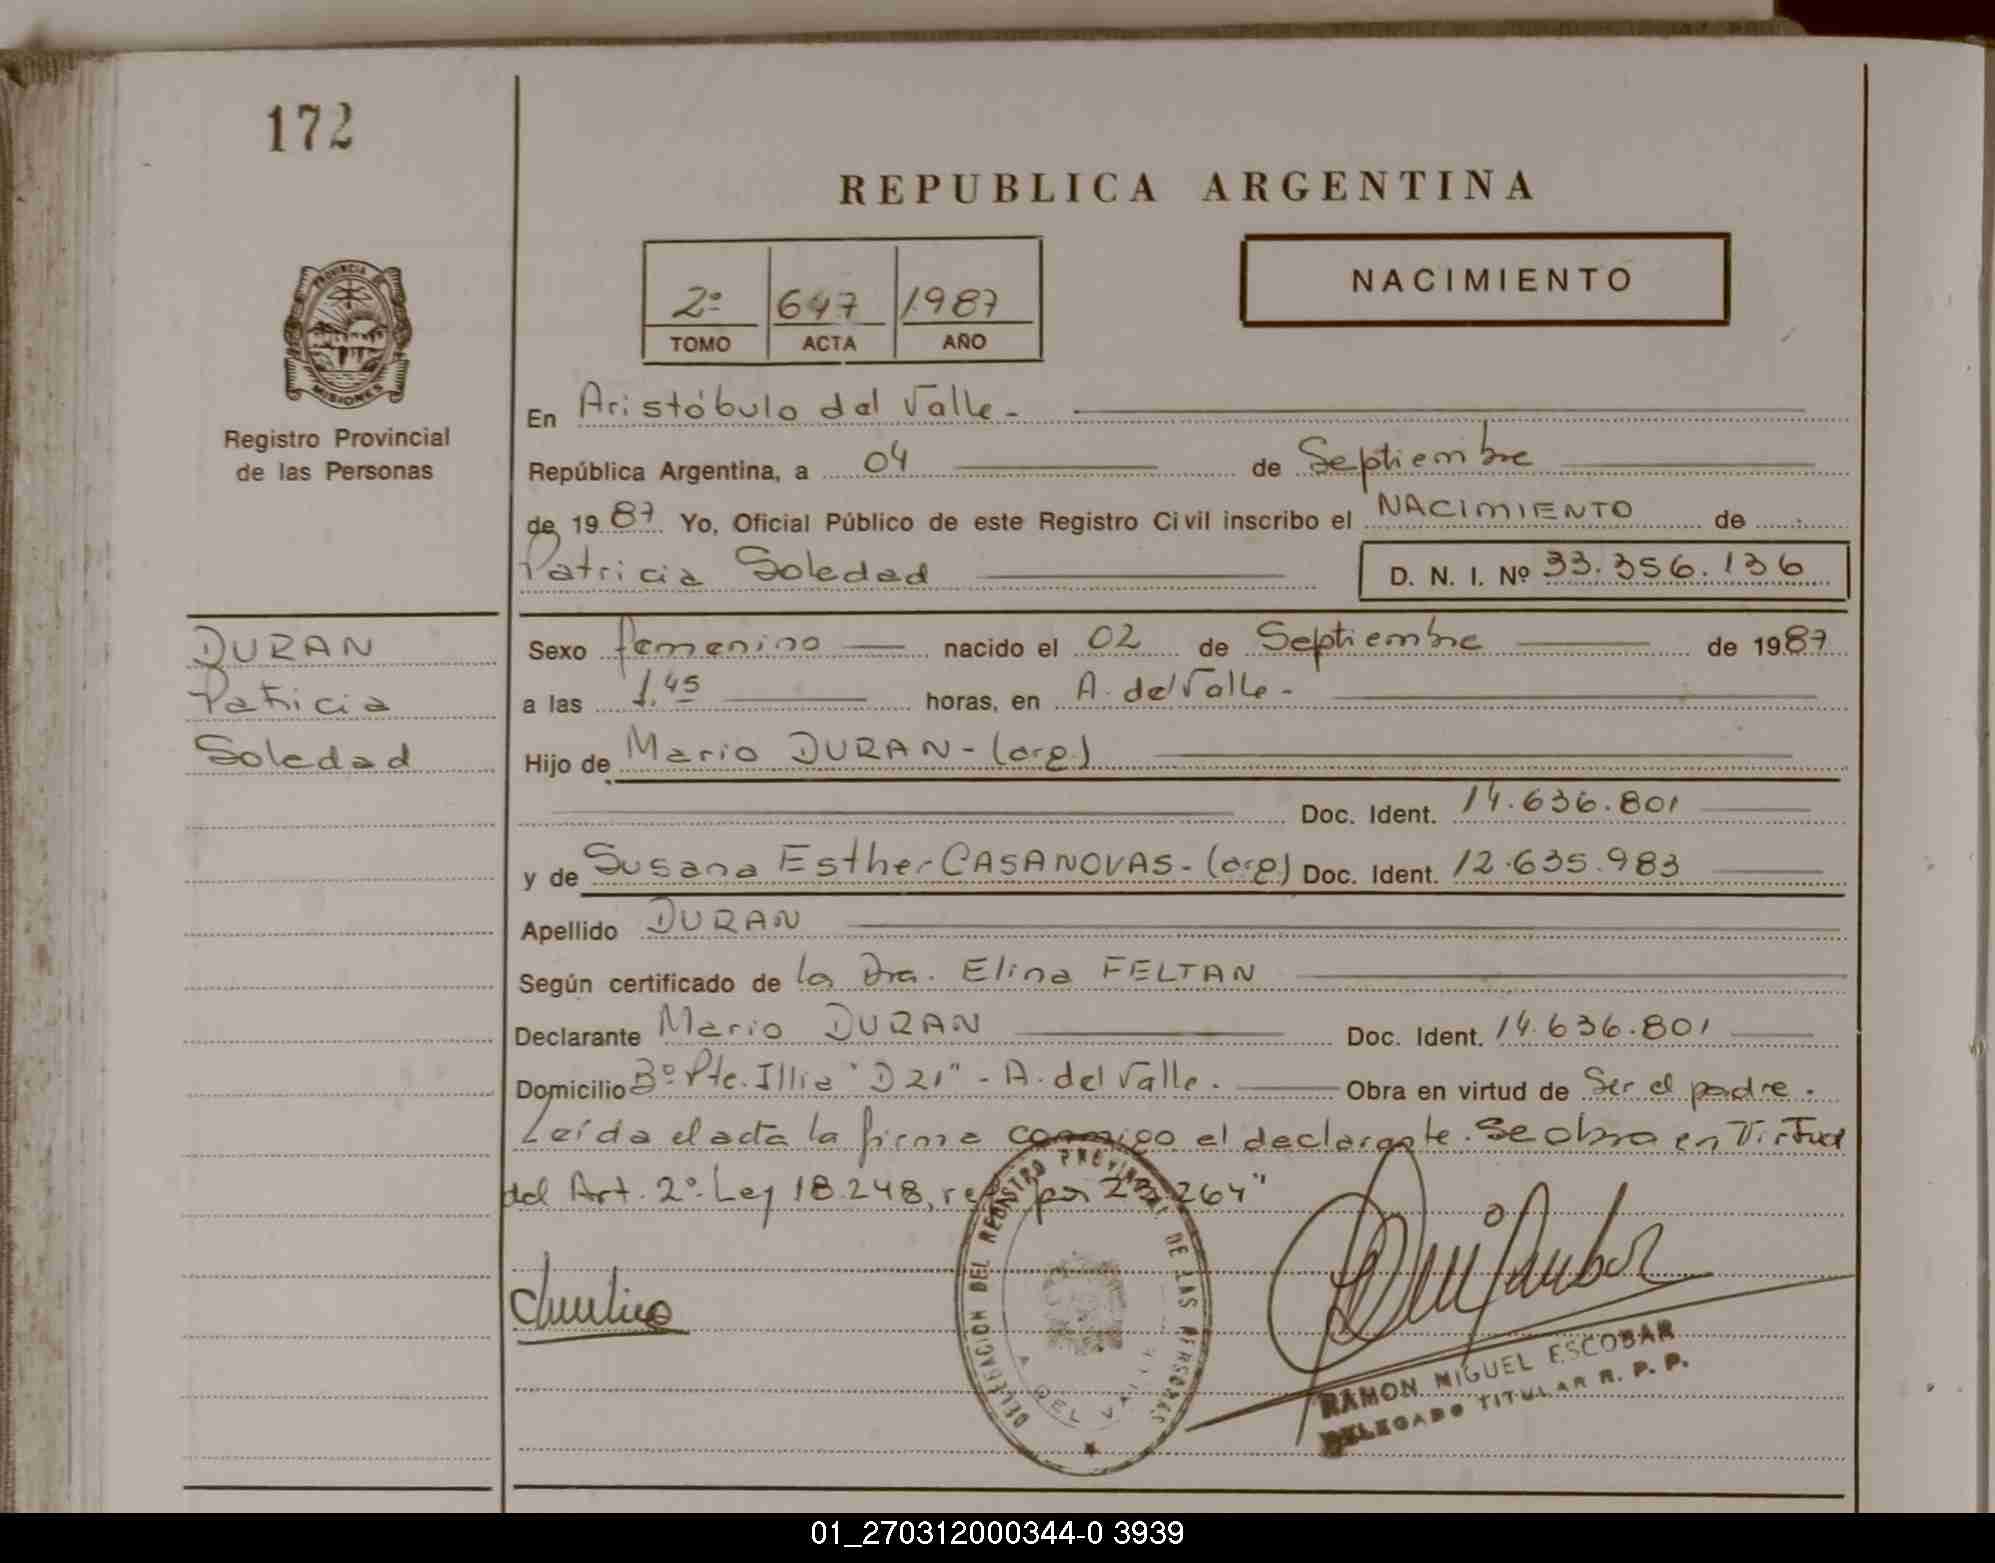 172
REPUBLICA ARGENTINA
2º 647 1987
TOMO ACTA AÑO
NACIMIENTO
PROVINCIA
MISIONES
Registro Provincial
de las Personas
En Aristóbulo del Valle.-
República Argentina, a 04 de Septiembre
de 1987. Yo, Oficial Público de este Registro Civil inscribo el NACIMIENTO de
Patricia Soledad D. N. I. Nº 33.356.136
DURAN
Patricia
Soledad
Sexo femenino nacido el 02 de Septiembre de 1987
a las 1.45 horas, en A. del Valle-
Hijo de Mario DURAN-(arg)
Doc. Ident. 14.636.801
y de Susana Esther CASANOVAS-(arg) Doc. Ident. 12.635.983
Apellido DURAN
Según certificado de la Dra. Elina FELTAN
Declarante Mario DURAN Doc. Ident. 14.636.801
Domicilio Bº Pte. Illia "D21" - A. del Valle. Obra en virtud de Ser el padre.
Leída el acta la firma conmigo el declarante. Se obra en Virtud
del Art. 2º. Ley 18.248, por 23.264"
DELEGACION DEL REGISTRO PROVINCIAL DE LAS PERSONAS
A. DEL VALLE
RAMON MIGUEL ESCOBAR
DELEGADO TITULAR R. P. P.
01_270312000344-0 3939